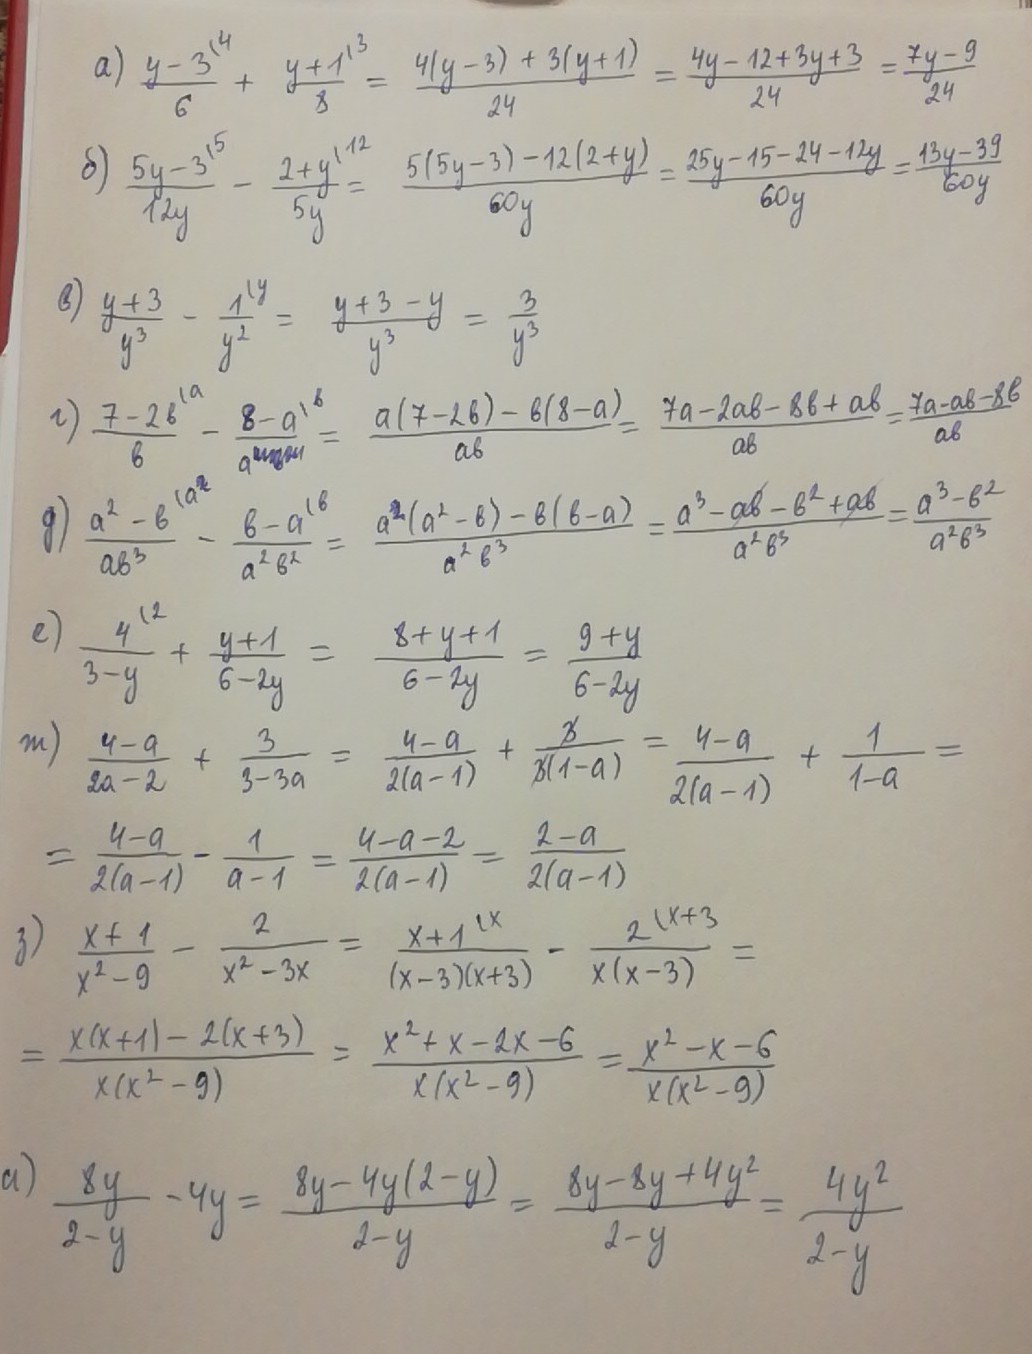 а) (y-3)/6 ⁽⁴ + (y+1)/8 ⁽³ = (4(y-3)+3(y+1))/24 = (4y-12+3y+3)/24 = (7y-9)/24
б) (5y-3)/12y ⁽⁵ - (2+y)/5y ⁽¹² = (5(5y-3)-12(2+y))/60y = (25y-15-24-12y)/60y = (13y-39)/60y
в) (y+3)/y³ - 1/y² ⁽ʸ = (y+3-y)/y³ = 3/y³
г) (7-2в)/в ⁽ᵃ - (8-a)/a ⁽ᵇ = (a(7-2в)-в(8-a))/aв = (7a-2aв-8в+aв)/aв = (7a-aв-8в)/aв
д) (a²-в)/aв³ ⁽ᵃ - (в-a)/a²в² ⁽ᵇ = (a(a²-в)-в(в-a))/a²в³ = (a³-aв-в²+aв)/a²в³ = (a³-в²)/a²в³
е) 4/(3-y) ⁽² + (y+1)/(6-2y) = (8+y+1)/(6-2y) = (9+y)/(6-2y)
ж) (4-a)/(2a-2) + 3/(3-3a) = (4-a)/2(a-1) + 3/3(1-a) = (4-a)/2(a-1) + 1/(1-a) =
= (4-a)/2(a-1) - 1/(a-1) = (4-a-2)/2(a-1) = (2-a)/2(a-1)
з) (x+1)/(x²-9) - 2/(x²-3x) = (x+1)/(x-3)(x+3) ⁽ˣ - 2/x(x-3) ⁽ˣ⁺³ =
= (x(x+1)-2(x+3))/x(x²-9) = (x²+x-2x-6)/x(x²-9) = (x²-x-6)/x(x²-9)
и) 8y/(2-y) - 4y = (8y-4y(2-y))/(2-y) = (8y-8y+4y²)/(2-y) = 4y²/(2-y)